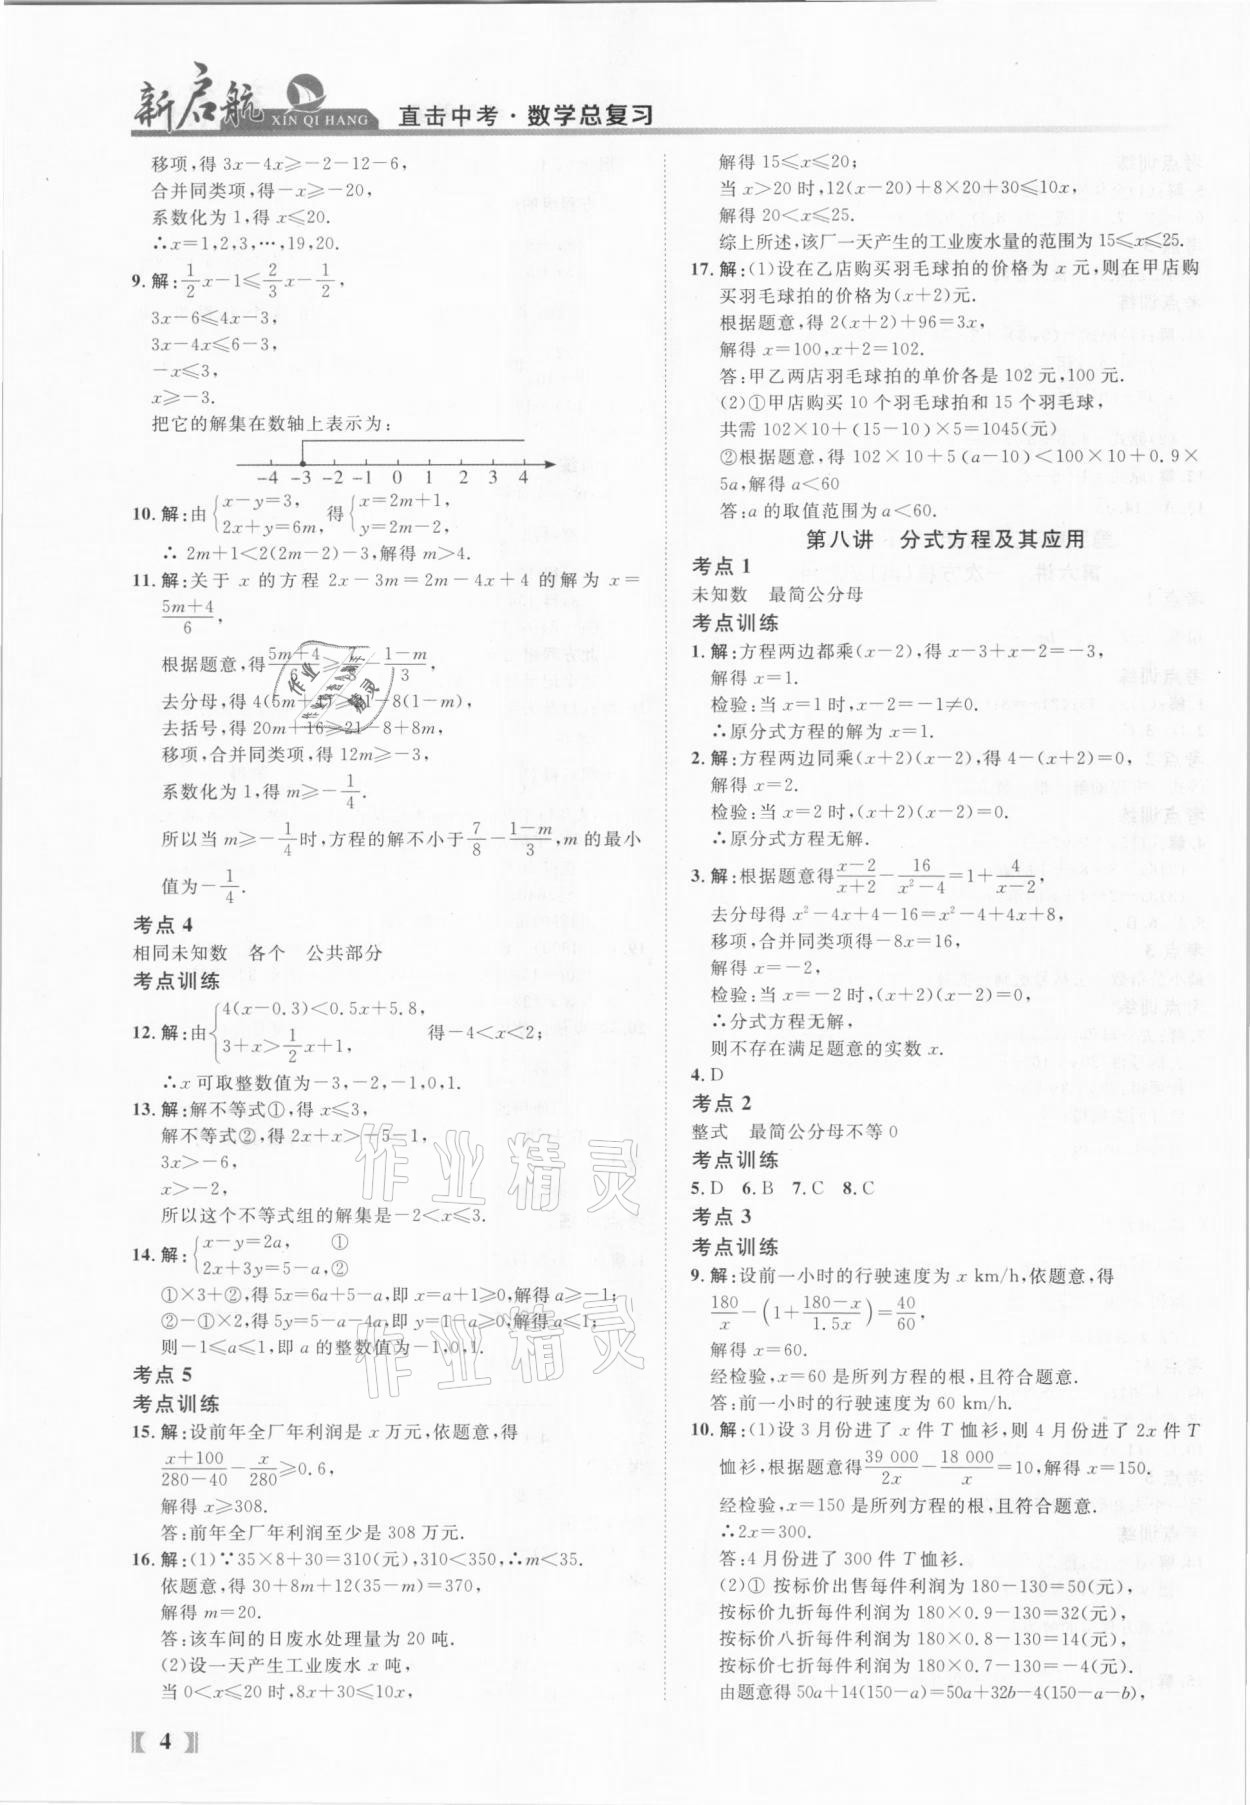 新启航 XIN QI HANG 直击中考·数学总复习
移项,得 3x-4x≥-2-12-6,
合并同类项,得-x≥-20,
系数化为 1,得 x≤20.
∴x=1,2,3,…,19,20.
9.解:1/2x-1≤2/3x-1/2,
3x-6≤4x-3,
3x-4x≤6-3,
-x≤3,
x≥-3.
把它的解集在数轴上表示为:
-4 -3 -2 -1 0 1 2 3 4
10.解:由{x-y=3, 2x+y=6m, 得{x=2m+1, y=2m-2,
∴ 2m+1<2(2m-2)-3,解得 m>4.
11.解:关于 x 的方程 2x-3m=2m-4x+4 的解为 x=
(5m+4)/6,
根据题意,得(5m+4)/6≥7/8-(1-m)/3,
去分母,得 4(5m+4)≥21-8(1-m),
去括号,得 20m+16≥21-8+8m,
移项,合并同类项,得 12m≥-3,
系数化为 1,得 m≥-1/4.
所以当 m≥-1/4时,方程的解不小于7/8-(1-m)/3,m 的最小
值为-1/4.
考点 4
相同未知数 各个 公共部分
考点训练
12.解:由{4(x-0.3)<0.5x+5.8, 3+x>1/2x+1, 得-4<x<2;
∴x 可取整数值为-3,-2,-1,0,1.
13.解:解不等式①,得 x≤3,
解不等式②,得 2x+x>-5-1,
3x>-6,
x>-2,
所以这个不等式组的解集是-2<x≤3.
14.解:{x-y=2a, ① 2x+3y=5-a,②
①×3+②,得 5x=6a+5-a,即 x=a+1≥0,解得 a≥-1;
②-①×2,得 5y=5-a-4a,即 y=1-a≥0,解得 a≤1;
则-1≤a≤1,即 a 的整数值为-1,0,1.
考点 5
考点训练
15.解:设前年全厂年利润是 x 万元,依题意,得
(x+100)/(280-40)-x/280≥0.6,
解得 x≥308.
答:前年全厂年利润至少是 308 万元.
16.解:(1)∵35×8+30=310(元),310<350,∴m<35.
依题意,得 30+8m+12(35-m)=370,
解得 m=20.
答:该车间的日废水处理量为 20 吨.
(2)设一天产生工业废水 x 吨,
当 0<x≤20 时,8x+30≤10x,
解得 15≤x≤20;
当 x>20 时,12(x-20)+8×20+30≤10x,
解得 20<x≤25.
综上所述,该厂一天产生的工业废水量的范围为 15≤x≤25.
17.解:(1)设在乙店购买羽毛球拍的价格为 x 元,则在甲店购
买羽毛球拍的价格为(x+2)元.
根据题意,得 2(x+2)+96=3x,
解得 x=100,x+2=102.
答:甲乙两店羽毛球拍的单价各是 102 元,100 元.
(2)①甲店购买 10 个羽毛球拍和 15 个羽毛球,
共需 102×10+(15-10)×5=1045(元)
②根据题意,得 102×10+5(a-10)<100×10+0.9×
5a,解得 a<60
答:a 的取值范围为 a<60.
第八讲 分式方程及其应用
考点 1
未知数 最简公分母
考点训练
1.解:方程两边都乘(x-2),得 x-3+x-2=-3,
解得 x=1.
检验:当 x=1 时,x-2=-1≠0.
∴原分式方程的解为 x=1.
2.解:方程两边同乘(x+2)(x-2),得 4-(x+2)=0,
解得 x=2.
检验:当 x=2 时,(x+2)(x-2)=0.
∴原分式方程无解.
3.解:根据题意得(x-2)/(x+2)-16/(x²-4)=1+4/(x-2),
去分母得 x²-4x+4-16=x²-4+4x+8,
移项,合并同类项得-8x=16,
解得 x=-2,
检验:当 x=-2 时,(x+2)(x-2)=0,
∴分式方程无解,
则不存在满足题意的实数 x.
4.D
考点 2
整式 最简公分母不等 0
考点训练
5.D 6.B 7.C 8.C
考点 3
考点训练
9.解:设前一小时的行驶速度为 x km/h,依题意,得
180/x-(1+(180-x)/1.5x)=40/60,
解得 x=60.
经检验,x=60 是所列方程的根,且符合题意.
答:前一小时的行驶速度为 60 km/h.
10.解:(1)设 3 月份进了 x 件 T 恤衫,则 4 月份进了 2x 件 T
恤衫,根据题意得39 000/2x-18 000/x=10,解得 x=150.
经检验,x=150 是所列方程的根,且符合题意.
∴2x=300.
答:4 月份进了 300 件 T 恤衫.
(2)① 按标价出售每件利润为 180-130=50(元),
按标价九折每件利润为 180×0.9-130=32(元),
按标价八折每件利润为 180×0.8-130=14(元),
按标价七折每件利润为 180×0.7-130=-4(元).
由题意得 50a+14(150-a)=50a+32b-4(150-a-b),
4
作业精灵
作业精灵
作业精灵